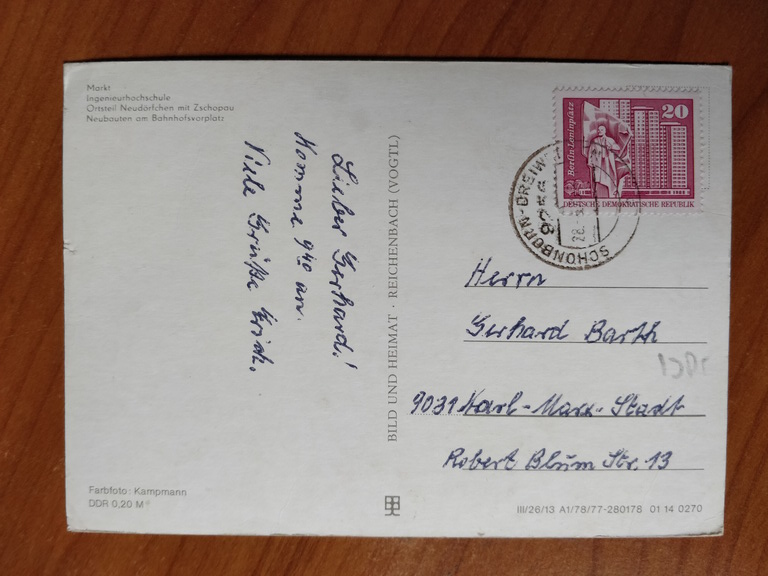 Markt
Ingenieurhochschule
Ortsteil Neudörfchen mit Zschopau
Neubauten am Bahnhofsvorplatz
Lieber Gerhard!
Komme 9 40 an.
Viele Grüße Erich.
Farbfoto: Kampmann
DDR 0,20 M
BILD UND HEIMAT · REICHENBACH (VOGTL)
20
Berlin-Leninplatz
DEUTSCHE DEMOKRATISCHE REPUBLIK
SCHÖNBORN-DREIW
28.
Herrn
Gerhard Barth
9031 Karl-Marx-Stadt
Robert Blum Str. 13
III/26/13 A1/78/77-280178 01 14 0270